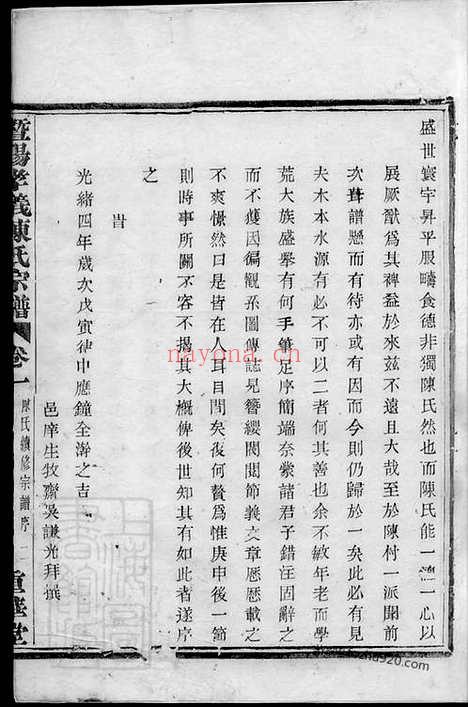 盛世寰宇昇平服疇食德非獨陳氏然也而陳氏能一德一心以
展厥猷爲其裨益於來茲不遠且大哉至於陳村一派聞前
次葺譜懸而有待亦或有因而今則仍歸於一矣此必有見
夫木本水源有不可以二者何其善也余不敏年老而學
荒大族盛舉有何手筆足序簡端奈紫諸君子錯注固辭之
而不獲因徧觀系圖傳誌見簪纓閥閱節義文章厯厯載之
不爽憬然曰是皆在人耳目間矣復何贅爲惟庚申後一節
則時事所關不容不揭其大概俾後世知其有此者遂序
之
旹
光緒四年歲次戊寅律中應鐘全澣之吉
邑庠生牧齋吳謙光拜撰
暨陽孝義陳氏宗譜 卷一 陳氏續修宗譜序 二 重華堂
nayona.cn
shuzhai920.com